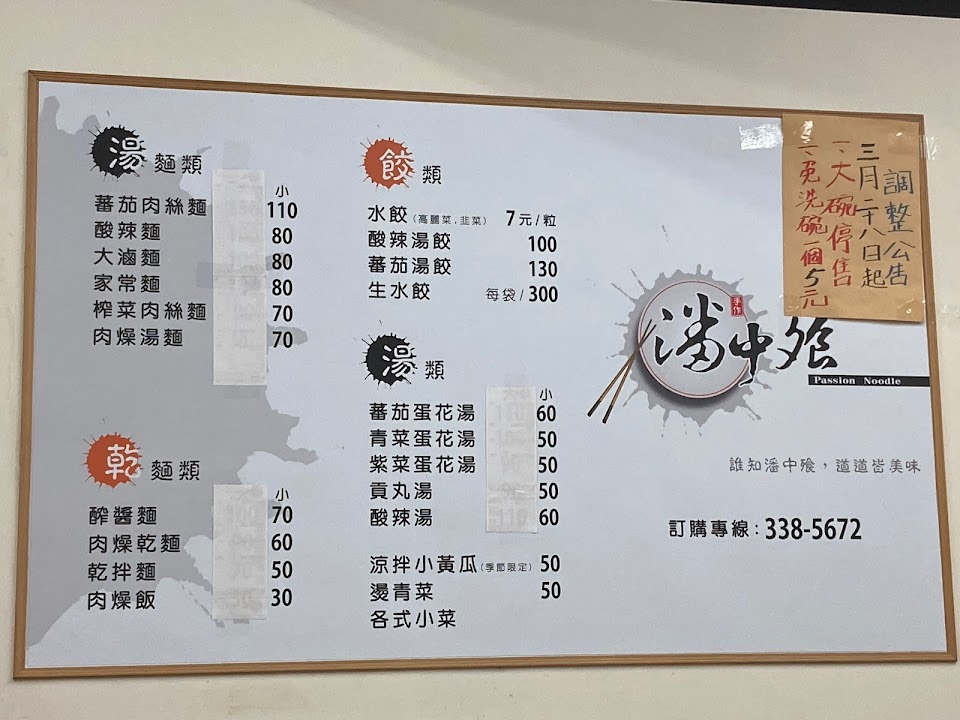 湯麵類
小
蕃茄肉絲麵 110
酸辣麵 80
大滷麵 80
家常麵 80
榨菜肉絲麵 70
肉燥湯麵 70
乾麵類
小
醡醬麵 70
肉燥乾麵 60
乾拌麵 50
肉燥飯 30
餃類
水餃(高麗菜.韭菜) 7元/粒
酸辣湯餃 100
蕃茄湯餃 130
生水餃 每袋/300
湯類
小
蕃茄蛋花湯 60
青菜蛋花湯 50
紫菜蛋花湯 50
貢丸湯 50
酸辣湯 60
涼拌小黃瓜(季節限定) 50
燙青菜 50
各式小菜
調整公告
三月二十八日起
一、大碗停售
一、免洗碗一個5元
手作
潘中飧
Passion Noodle
誰知潘中飧，道道皆美味
訂購專線：338-5672